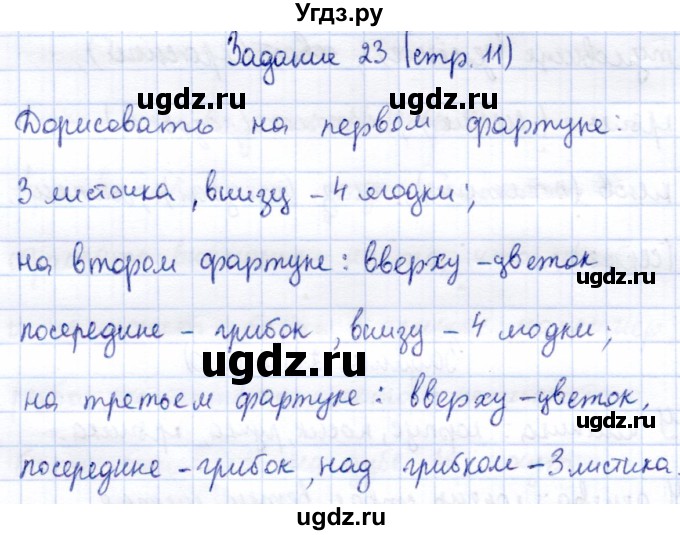 Угдз.ру
Задание 23 (стр. 11)
ugdz.ru
ugdz.ru
Дорисовать на первом фартуке:
3 листочка, внизу - 4 ягодки;
ugdz.ru
на втором фартуке: вверху - цветок
ugdz.ru
посередине - грибок, внизу - 4 ягодки;
ugdz.ru
на третьем фартуке: вверху - цветок,
ugdz.ru
посередине - грибок, над грибком - 3 листика.
ugdz.ru